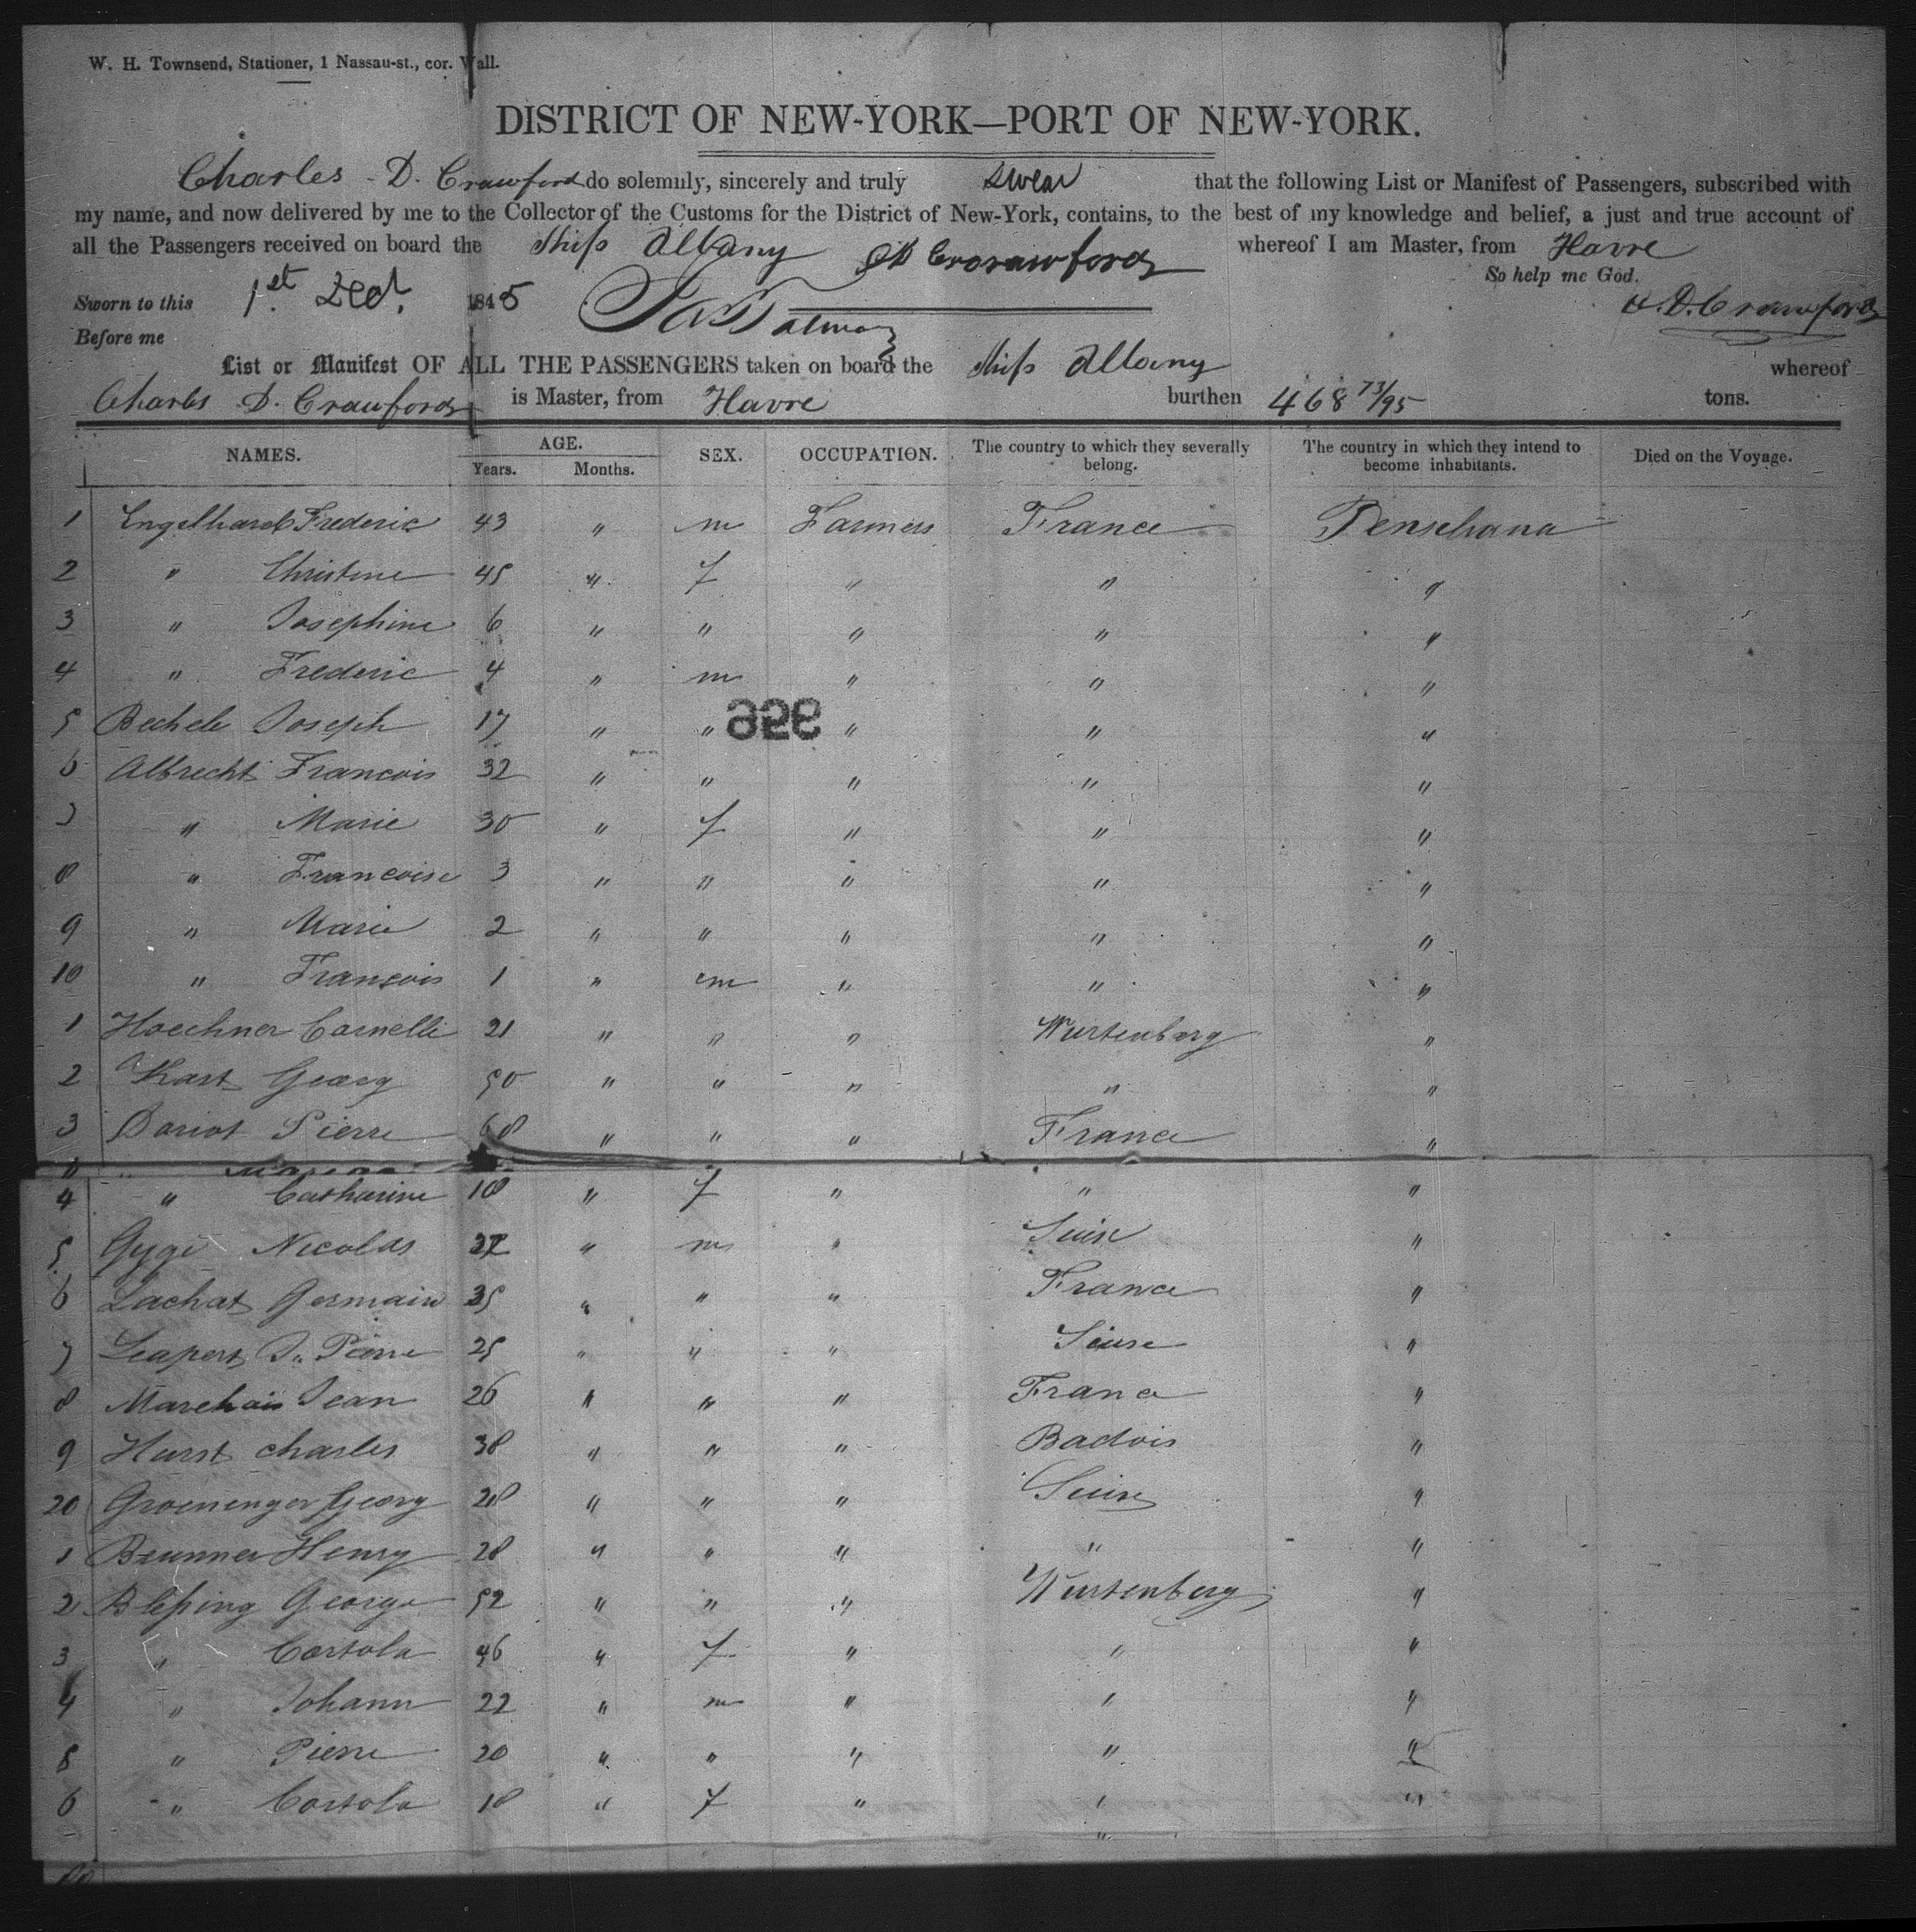 W. H. Townsend, Stationer, 1 Nassau-st., cor. Wall.
DISTRICT OF NEW-YORK—PORT OF NEW-YORK.
Charles D. Crawford do solemnly, sincerely and truly swear that the following List or Manifest of Passengers, subscribed with
my name, and now delivered by me to the Collector of the Customs for the District of New-York, contains, to the best of my knowledge and belief, a just and true account of
all the Passengers received on board the Ship Albany C D Crawford whereof I am Master, from Havre
So help me God.
Sworn to this 1st Dec. 1845 C. D. Crawford
Before me
List or Manifest OF ALL THE PASSENGERS taken on board the Ship Albany whereof
Charles D. Crawford is Master, from Havre burthen 468 73/95 tons.
NAMES. AGE. Years. Months. SEX. OCCUPATION. The country to which they severally belong. The country in which they intend to become inhabitants. Died on the Voyage.
1 Engelhard Frederic 43 " m Farmers France Penselvana
2 " Christine 45 " f " " "
3 " Josephine 6 " " " " "
4 " Frederic 4 " m " " "
5 Bechele Joseph 17 " " " " "
956
6 Albrecht Francois 32 " " " " "
7 " Marie 30 " f " " "
8 " Francoise 3 " " " " "
9 " Marie 2 " " " " "
10 " François 1 " m " " "
1 Hoechner Cornelli 21 " " " Wurtenberg "
2 Kast Georg 50 " " " " "
3 Dariot Pierre 68 " " " France "
4 " Catharine 18 " f " " "
5 Gygi Nicolas 32 " m " Suise "
6 Lachat Germain 35 " " " France "
7 Leapert J. Pierre 25 " " " Siuse "
8 Marchais Jean 26 " " " France "
9 Hurst charles 38 " " " Badois "
20 Groeninger Georg 28 " " " Suise "
1 Brunner Henry 28 " " " " "
2 Blessing George 52 " " " Wurtenberg "
3 " Cortola 46 " f " " "
4 " Johann 22 " m " " "
5 " Pierre 20 " " " " "
6 " Cortola 18 " f " " "